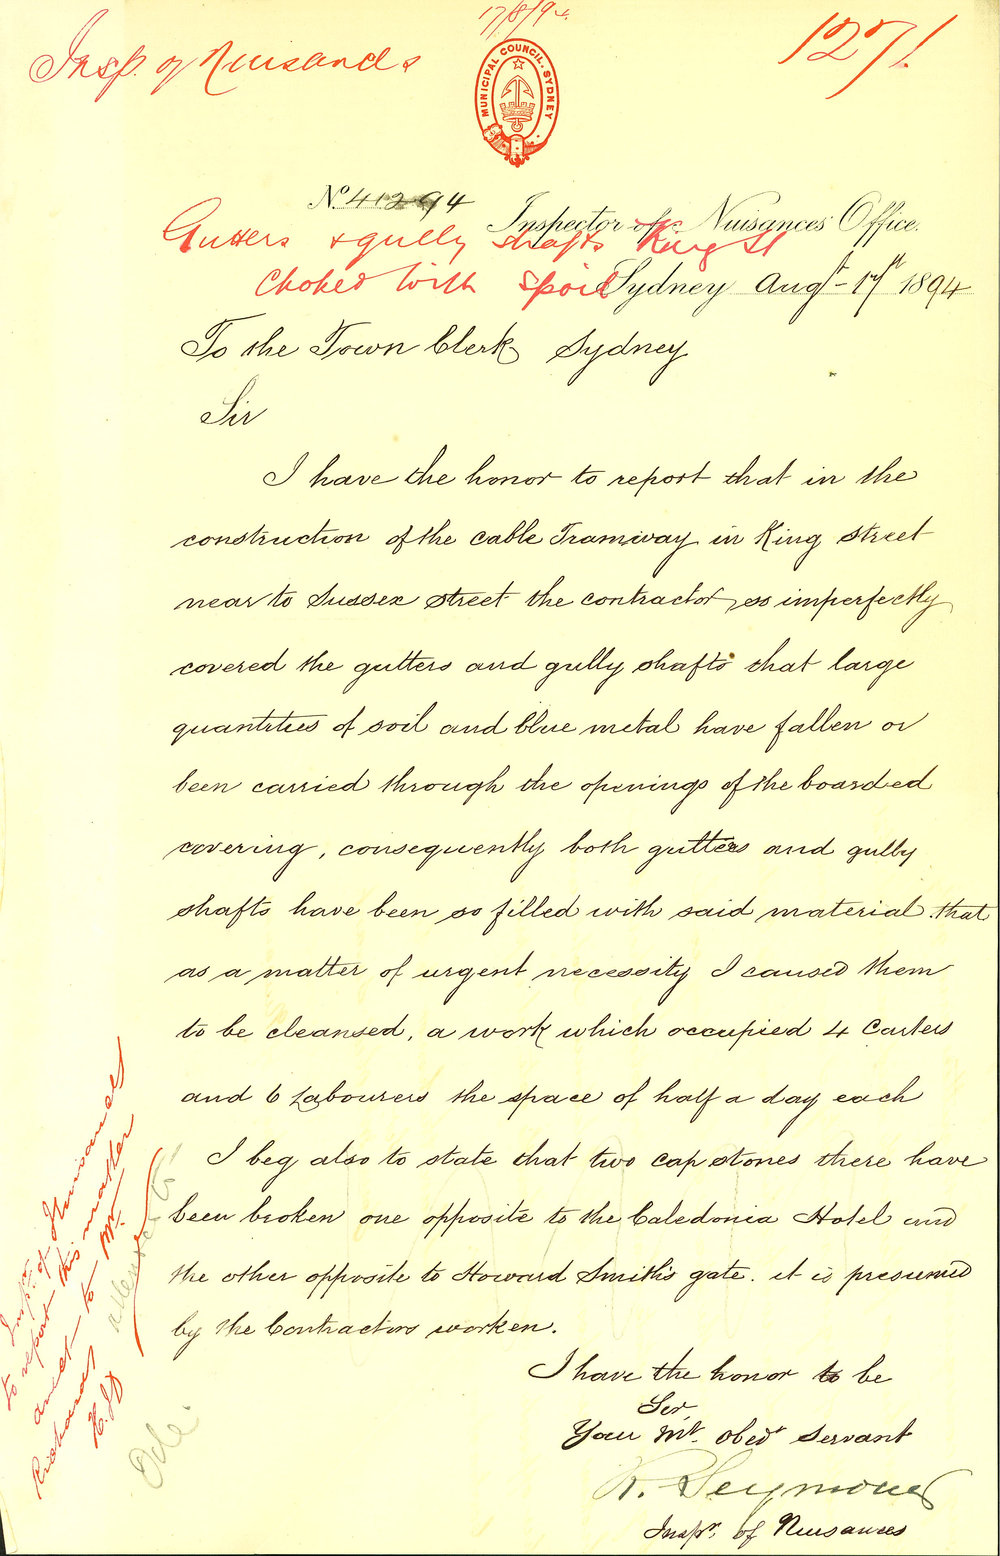 17/8/94
Insp. of Nuisances
1271
MUNICIPAL COUNCIL. SYDNEY
No. 412 94
Inspector of Nuisances Office.
Gutters & gully shafts King St
Choked with spoil
Sydney Augt. 17th 1894
To the Town Clerk Sydney
Sir
I have the honor to report that in the
construction of the cable Tramway in King street
near to Sussex street the contractor so imperfectly
covered the gutters and gully shafts that large
quantities of soil and blue metal have fallen or
been carried through the openings of the boarded
covering, consequently both gutters and gully
shafts have been so filled with said material that
as a matter of urgent necessity I caused them
to be cleansed, a work which occupied 4 Carters
and 6 Labourers the space of half a day each
I beg also to state that two cap stones there have
been broken one opposite to the Caledonia Hotel and
the other opposite to Howard Smith's gate. it is presumed
by the Contractors workmen.
I have the honor to be
Sir,
Your Mt. Obedt Servant
R. Seymour
Inspr. of Nuisances
Inspr. of Nuisances
to report this matter
to Mr.
Richards